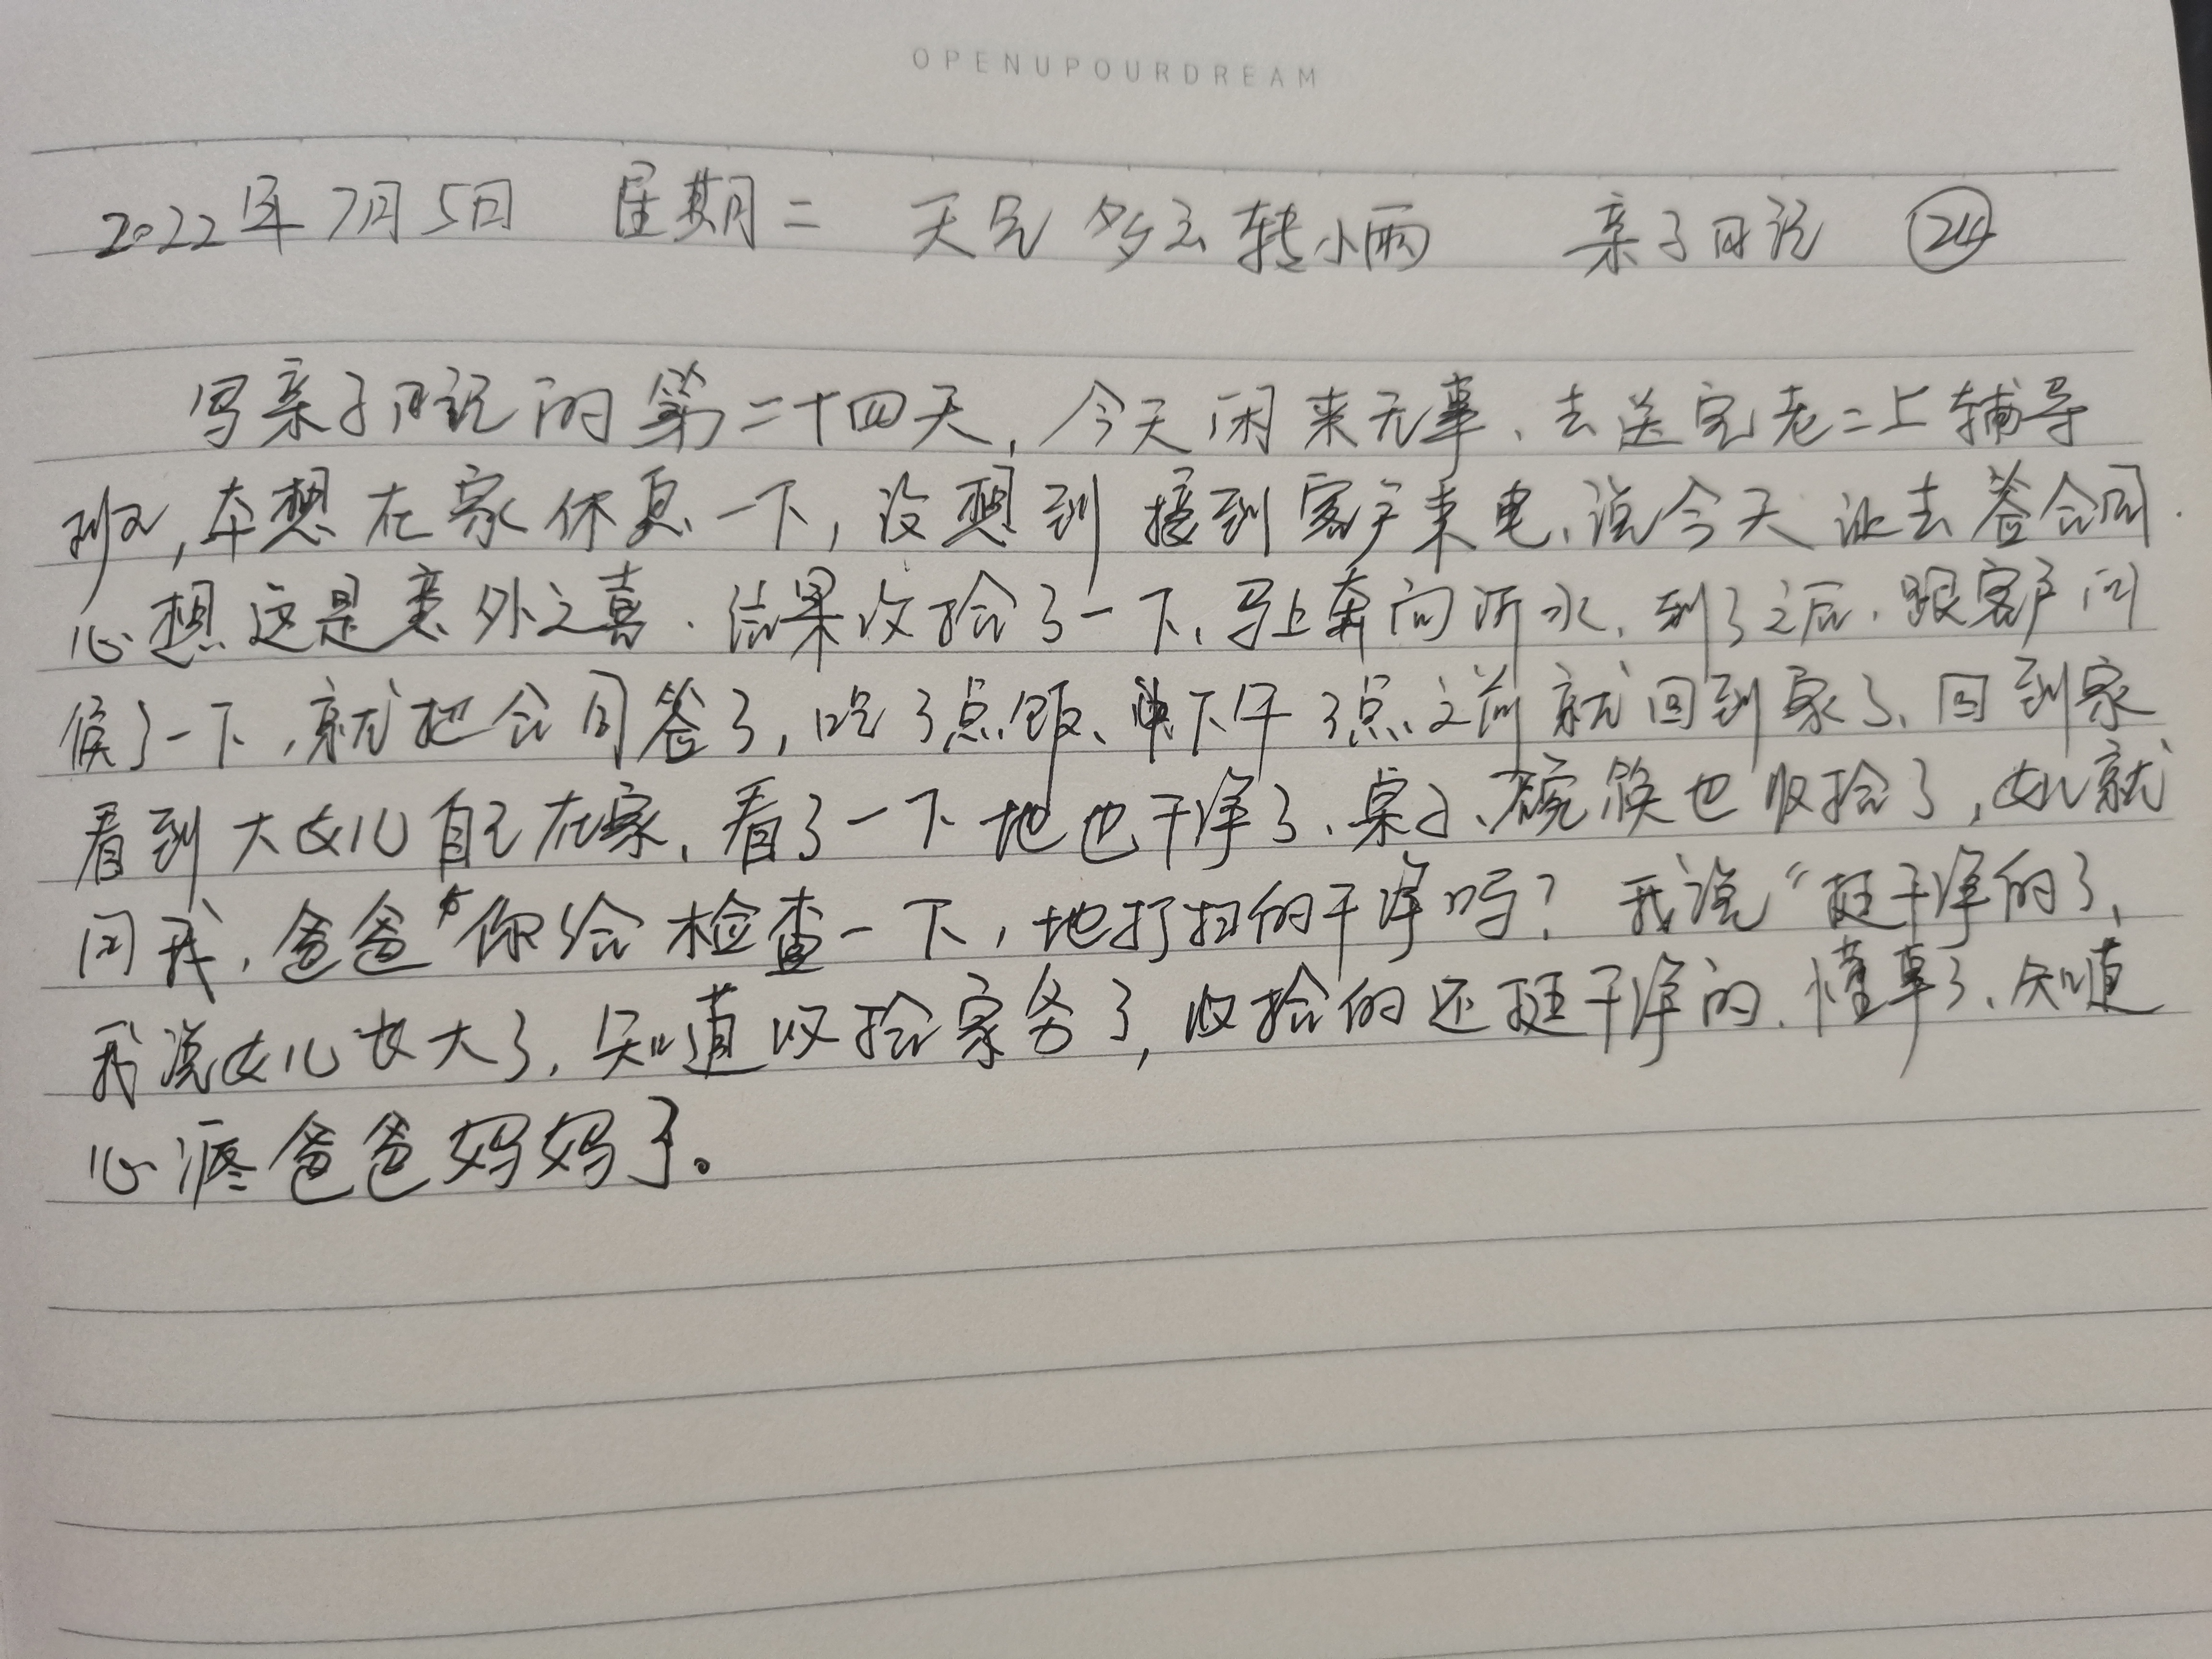 OPENUPOURDREAM
2022年7月5日 星期二 天气 多云转小雨 亲子日记 ㉔
写亲子日记的第二十四天,今天闲来无事、去送完老二上辅导
班,本想在家休息一下,没想到接到客户来电、说今天让去签合同.
心想这是意外之喜.结果收拾了一下、马上奔向沂水、到了之后.跟客户问
候了一下,就把合同签了,吃了点饭、下午3点之前就回到家了、回到家
看到大女儿自己在家、看了一下地也干净了、桌子、碗筷也收拾了,女儿就
问我,爸爸“你给检查一下,地打扫的干净吗?我说“挺干净的了、
我说女儿长大了,知道收拾家务了,收拾的还挺干净的.懂事了、知道
心疼爸爸妈妈了。